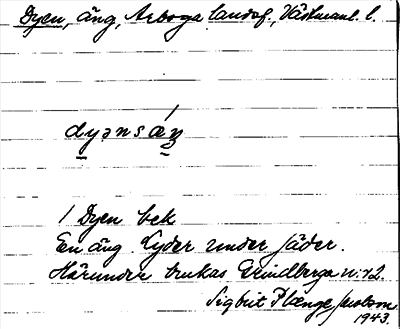 Dyen, äng, Arboga landsf., Västmanl. l.
dyənsáŋ
1 Dyen bek
En äng. Lyder under Jäder.
Härunder brukas Grindberga n:r 2.
Sigbrit Plænge Jacobson
1943.